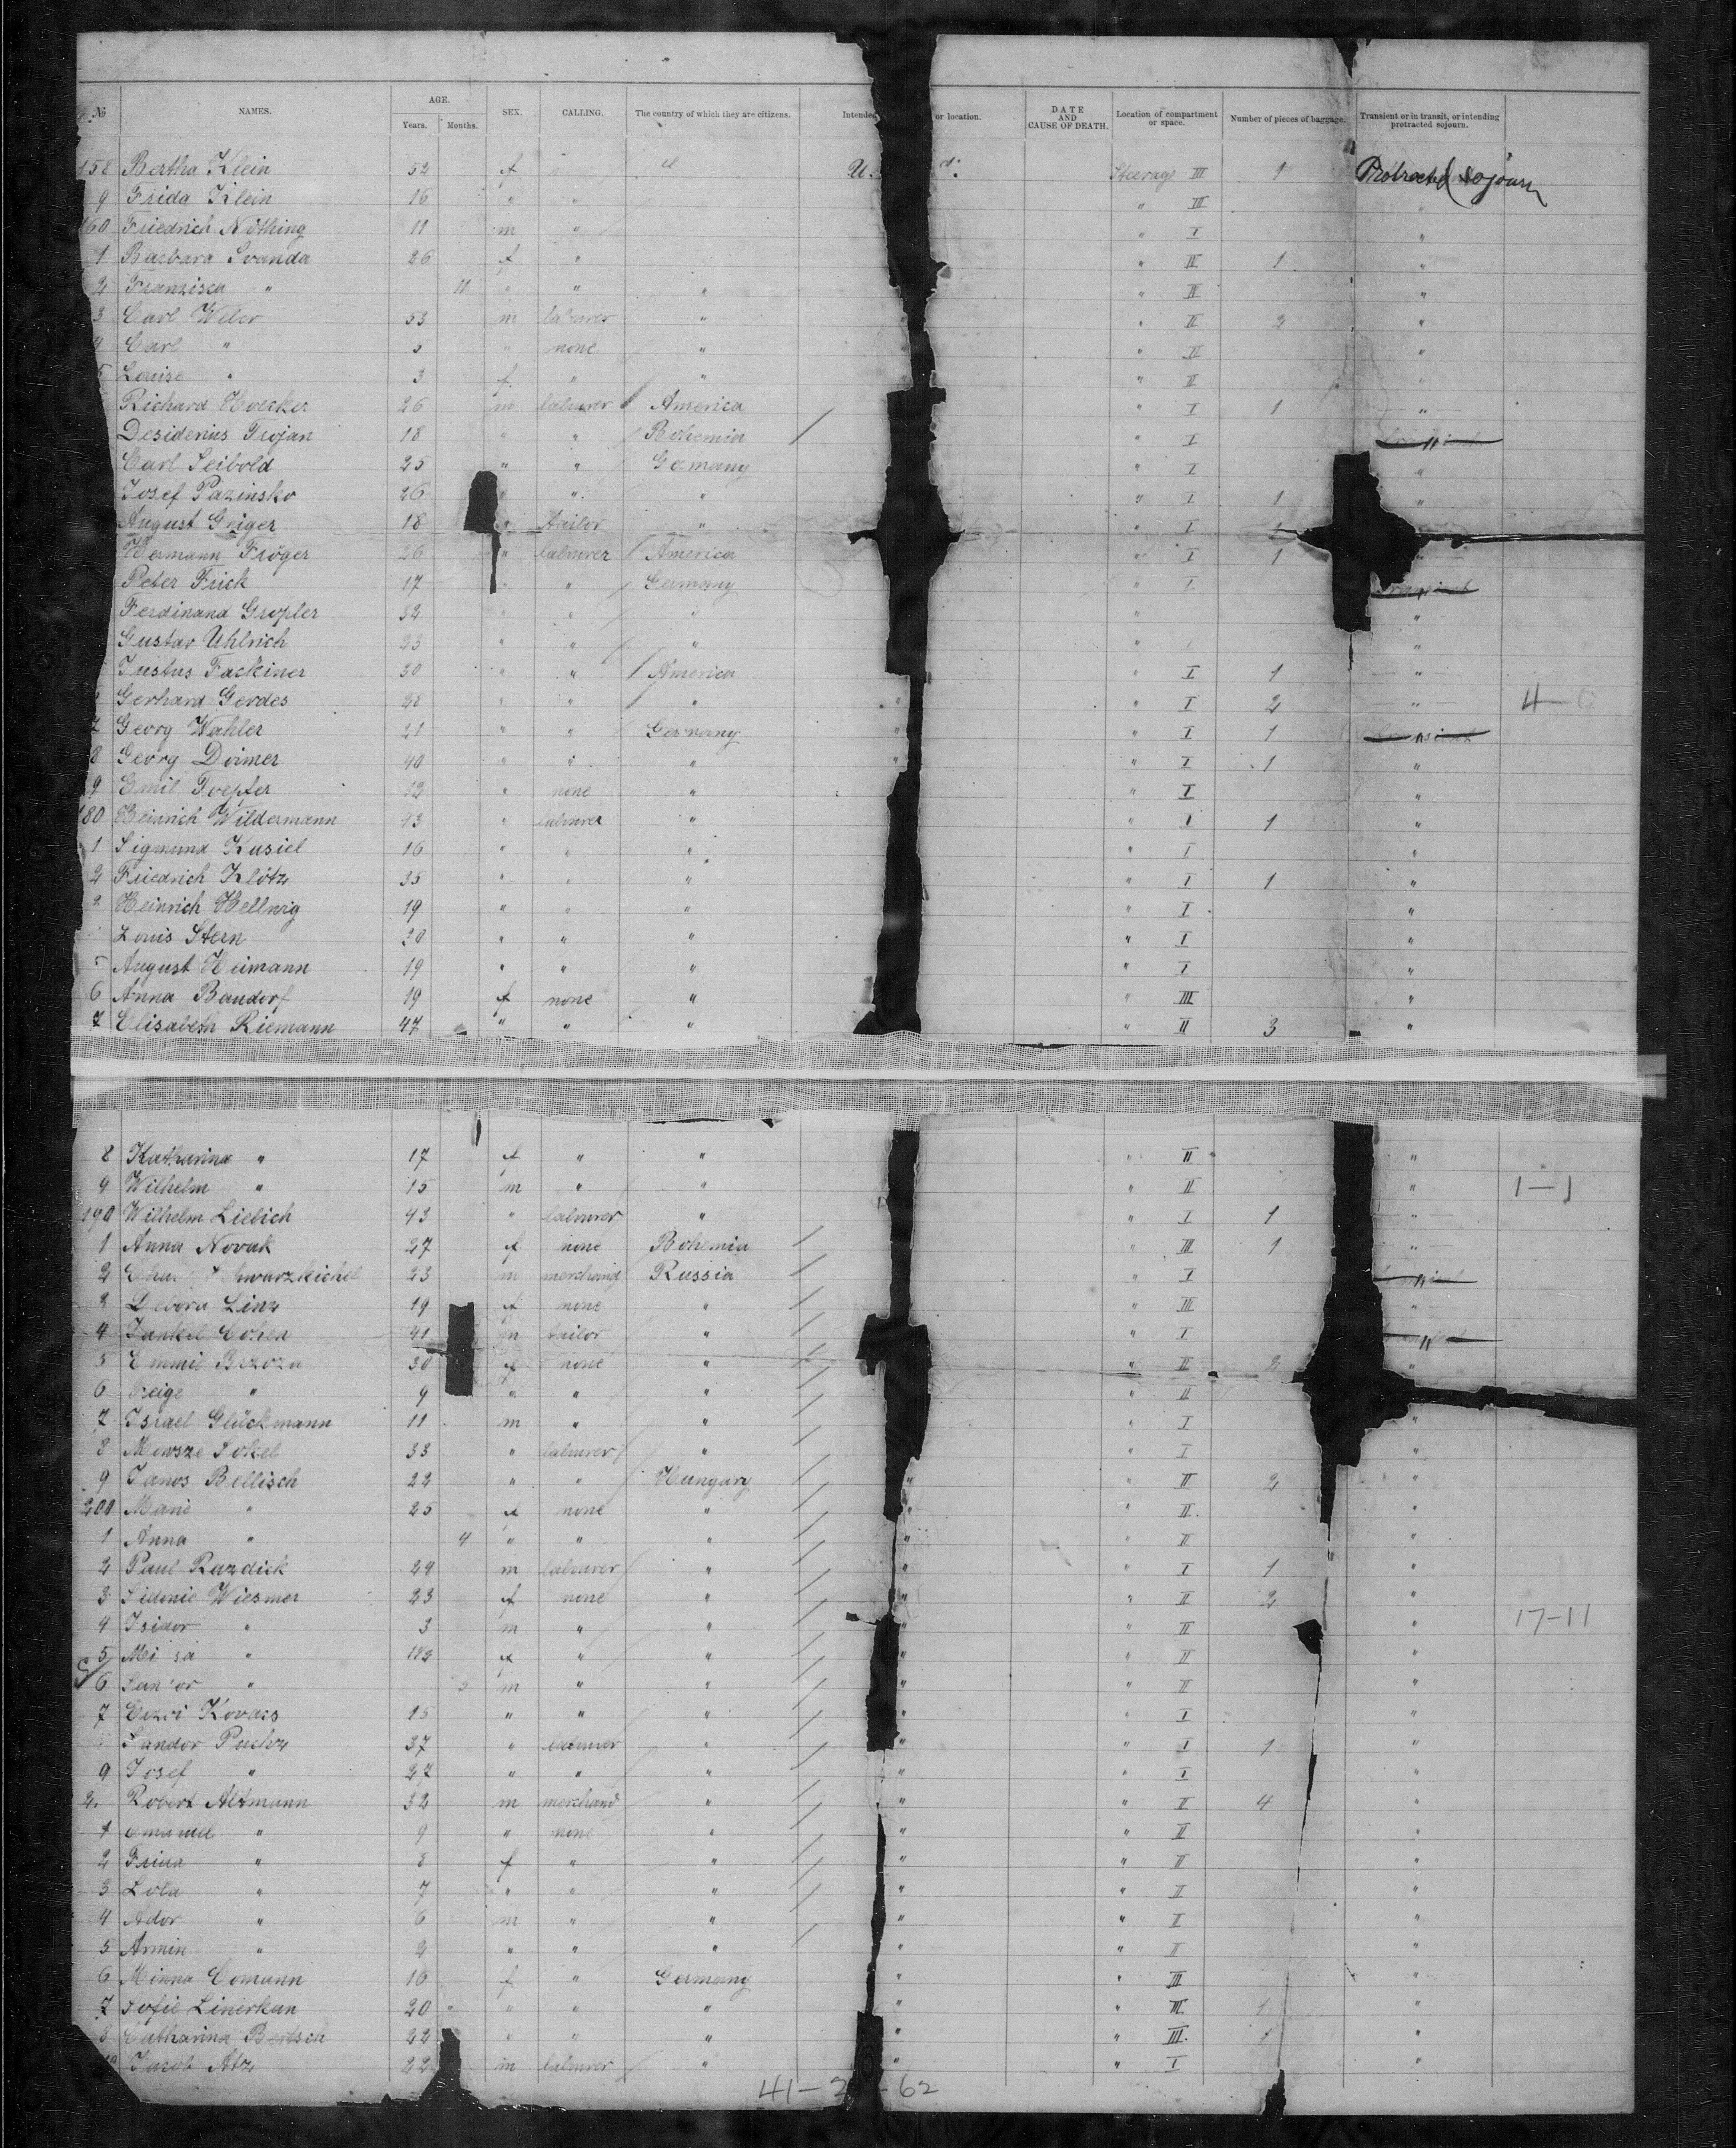 No. NAMES. AGE. Years. Months. SEX. CALLING. The country of which they are citizens. Intended or location. DATE AND CAUSE OF DEATH. Location of compartment or space. Number of pieces of baggage. Transient or in transit, or intending protracted sojourn.
158 Bertha Klein 52 f U. Steerage III 1 Protracted sojourn
9 Frida Klein 16 " " " III "
160 Friedrich Nöthing 11 m " " I "
1 Barbara Svanda 26 f " " II 1 "
2 Franzisca " 11 " " " " II "
3 Carl Weber 53 m labourer " " II 2 "
4 Carl " 5 " none " " II "
5 Louise " 3 f " " " II "
Richard Hoecker 26 m labourer America " I 1 "
Desiderius Trojan 18 " " Bohemia " I "
Carl Seibold 25 " " Germany " I "
Josef Pazinsko 26 " " " " I 1 "
August Geiger 18 " tailor " " I 1
Hermann Fröger 26 " labourer America " I 1 "
Peter Frick 17 " " Germany " I
Ferdinand Gropler 32 " " " " "
Gustav Uhlrich 23 " " " " "
Justus Fackiner 30 " " America " I 1 "
Gerhard Gerdes 25 " " " " " I 2 " 4-
7 Georg Wahler 21 " " Germany " " I 1 "
8 Georg Doimer 40 " " " " " I 1 "
9 Emil Toepfer 12 " none " " I "
180 Heinrich Wildermann 43 " labourer " " I 1 "
1 Sigmund Kusiel 16 " " " " I "
2 Friedrich Klötz 35 " " " " I 1 "
3 Heinrich Hellwig 19 " " " " I "
Louis Stern 30 " " " " I "
5 August Heimann 19 " " " " I "
6 Anna Baudorf 19 f none " " III "
7 Elisabeth Riemann 47 " " " " II 3 "
8 Katharina " 17 f " " " II "
9 Wilhelm " 15 m " " " II " 1-1
190 Wilhelm Liebich 43 " labourer " " I 1 "
1 Anna Novak 27 f none Bohemia " III 1 "
2 23 m merchand Russia " I "
3 Debora Linz 19 f none " " III "
4 Jankel Cohen 41 m tailor " " I "
5 Emmie Brzoza 30 f none " " II 2 "
6 Feige " 9 " " " " II
7 Israel Glückmann 11 m " " " I "
8 Mowsze Sokel 33 " labourer " " I "
9 Janos Bellisch 22 " " Hungary " " II 2 "
200 Marie " 25 f none " " " II "
1 Anna " 4 " " " " " II "
2 Paul Razdick 29 m labourer " " " I 1 "
3 Sidonie Wiesmer 23 f none " " " II 2 "
4 Isidor " 3 m " " " " II " 17-11
5 " f " " " " II "
6 " m " " " " II "
7 Kovacs 15 " " " " " I "
Sandor Puchz 37 " labourer " " " I 1 "
9 Josef " 27 " " " " " I "
2. Robert Altmann 32 m merchand " " " II 4 "
1 " 9 " none " " " II "
2 Frida " 8 f " " " " II "
3 Lola " 7 " " " " " II "
4 Ador " 6 m " " " " II "
5 Armin " 2 " " " " " II "
6 Minna Comann 16 f " Germany " " III "
7 Sofie Linerkun 20 " " " " " III 1 "
8 Catharina Bertsch 22 " " " " " III 1 "
Jacob Atz 22 m labourer " " " I "
41-2 -62